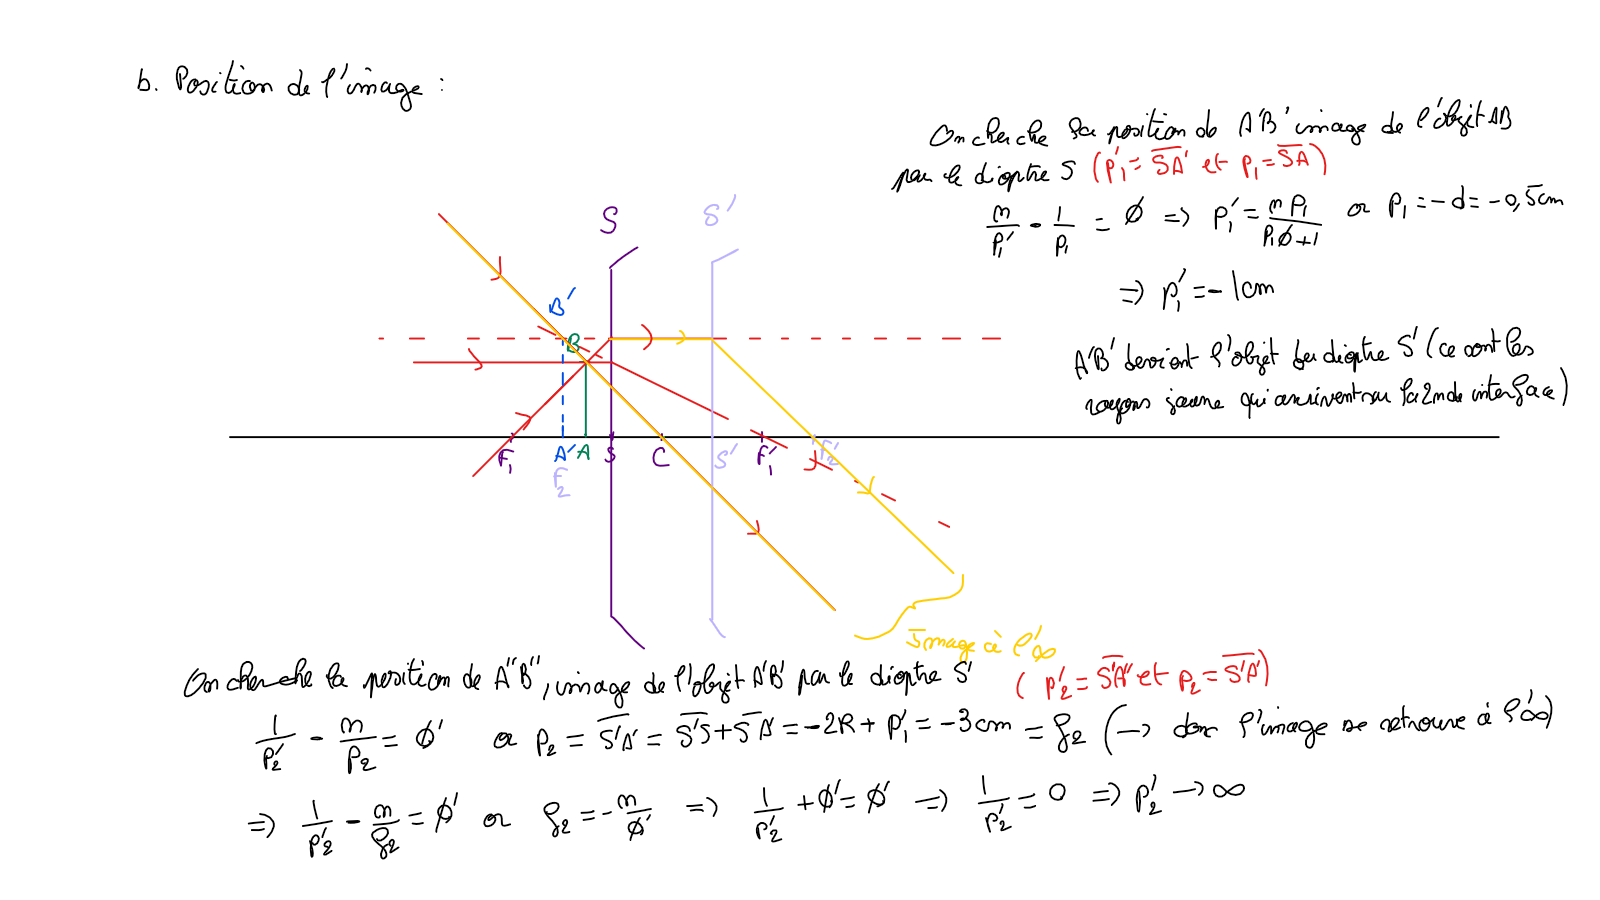 b. Position de l'image :
On cherche la position de A'B' image de l'objet AB
par le dioptre S (p₁' = S̅A̅' et p₁ = S̅A̅)
n/p₁' - 1/p₁ = ϕ => p₁' = n p₁/(p₁ϕ+1) or p₁ = -d = -0,5cm
=> p₁' = -1cm
A'B' devient l'objet du dioptre S' (ce sont les
rayons jaune qui arrivent sur la 2nde interface)
S S'
B'
B
F₁ A' A S C S' F₁' F₂'
F₂
Image à l'∞
On cherche la position de A"B", image de l'objet A'B' par le dioptre S' (p₂' = S̅'A̅" et p₂ = S̅'A̅')
1/p₂' - n/p₂ = ϕ' or p₂ = S̅'A̅' = S̅'S̅ + S̅A̅' = -2R + p₁' = -3cm = f₂ (→ donc l'image se retrouve à l'∞)
=> 1/p₂' - n/f₂ = ϕ' or f₂ = -n/ϕ' => 1/p₂' + ϕ' = ϕ' => 1/p₂' = 0 => p₂' → ∞